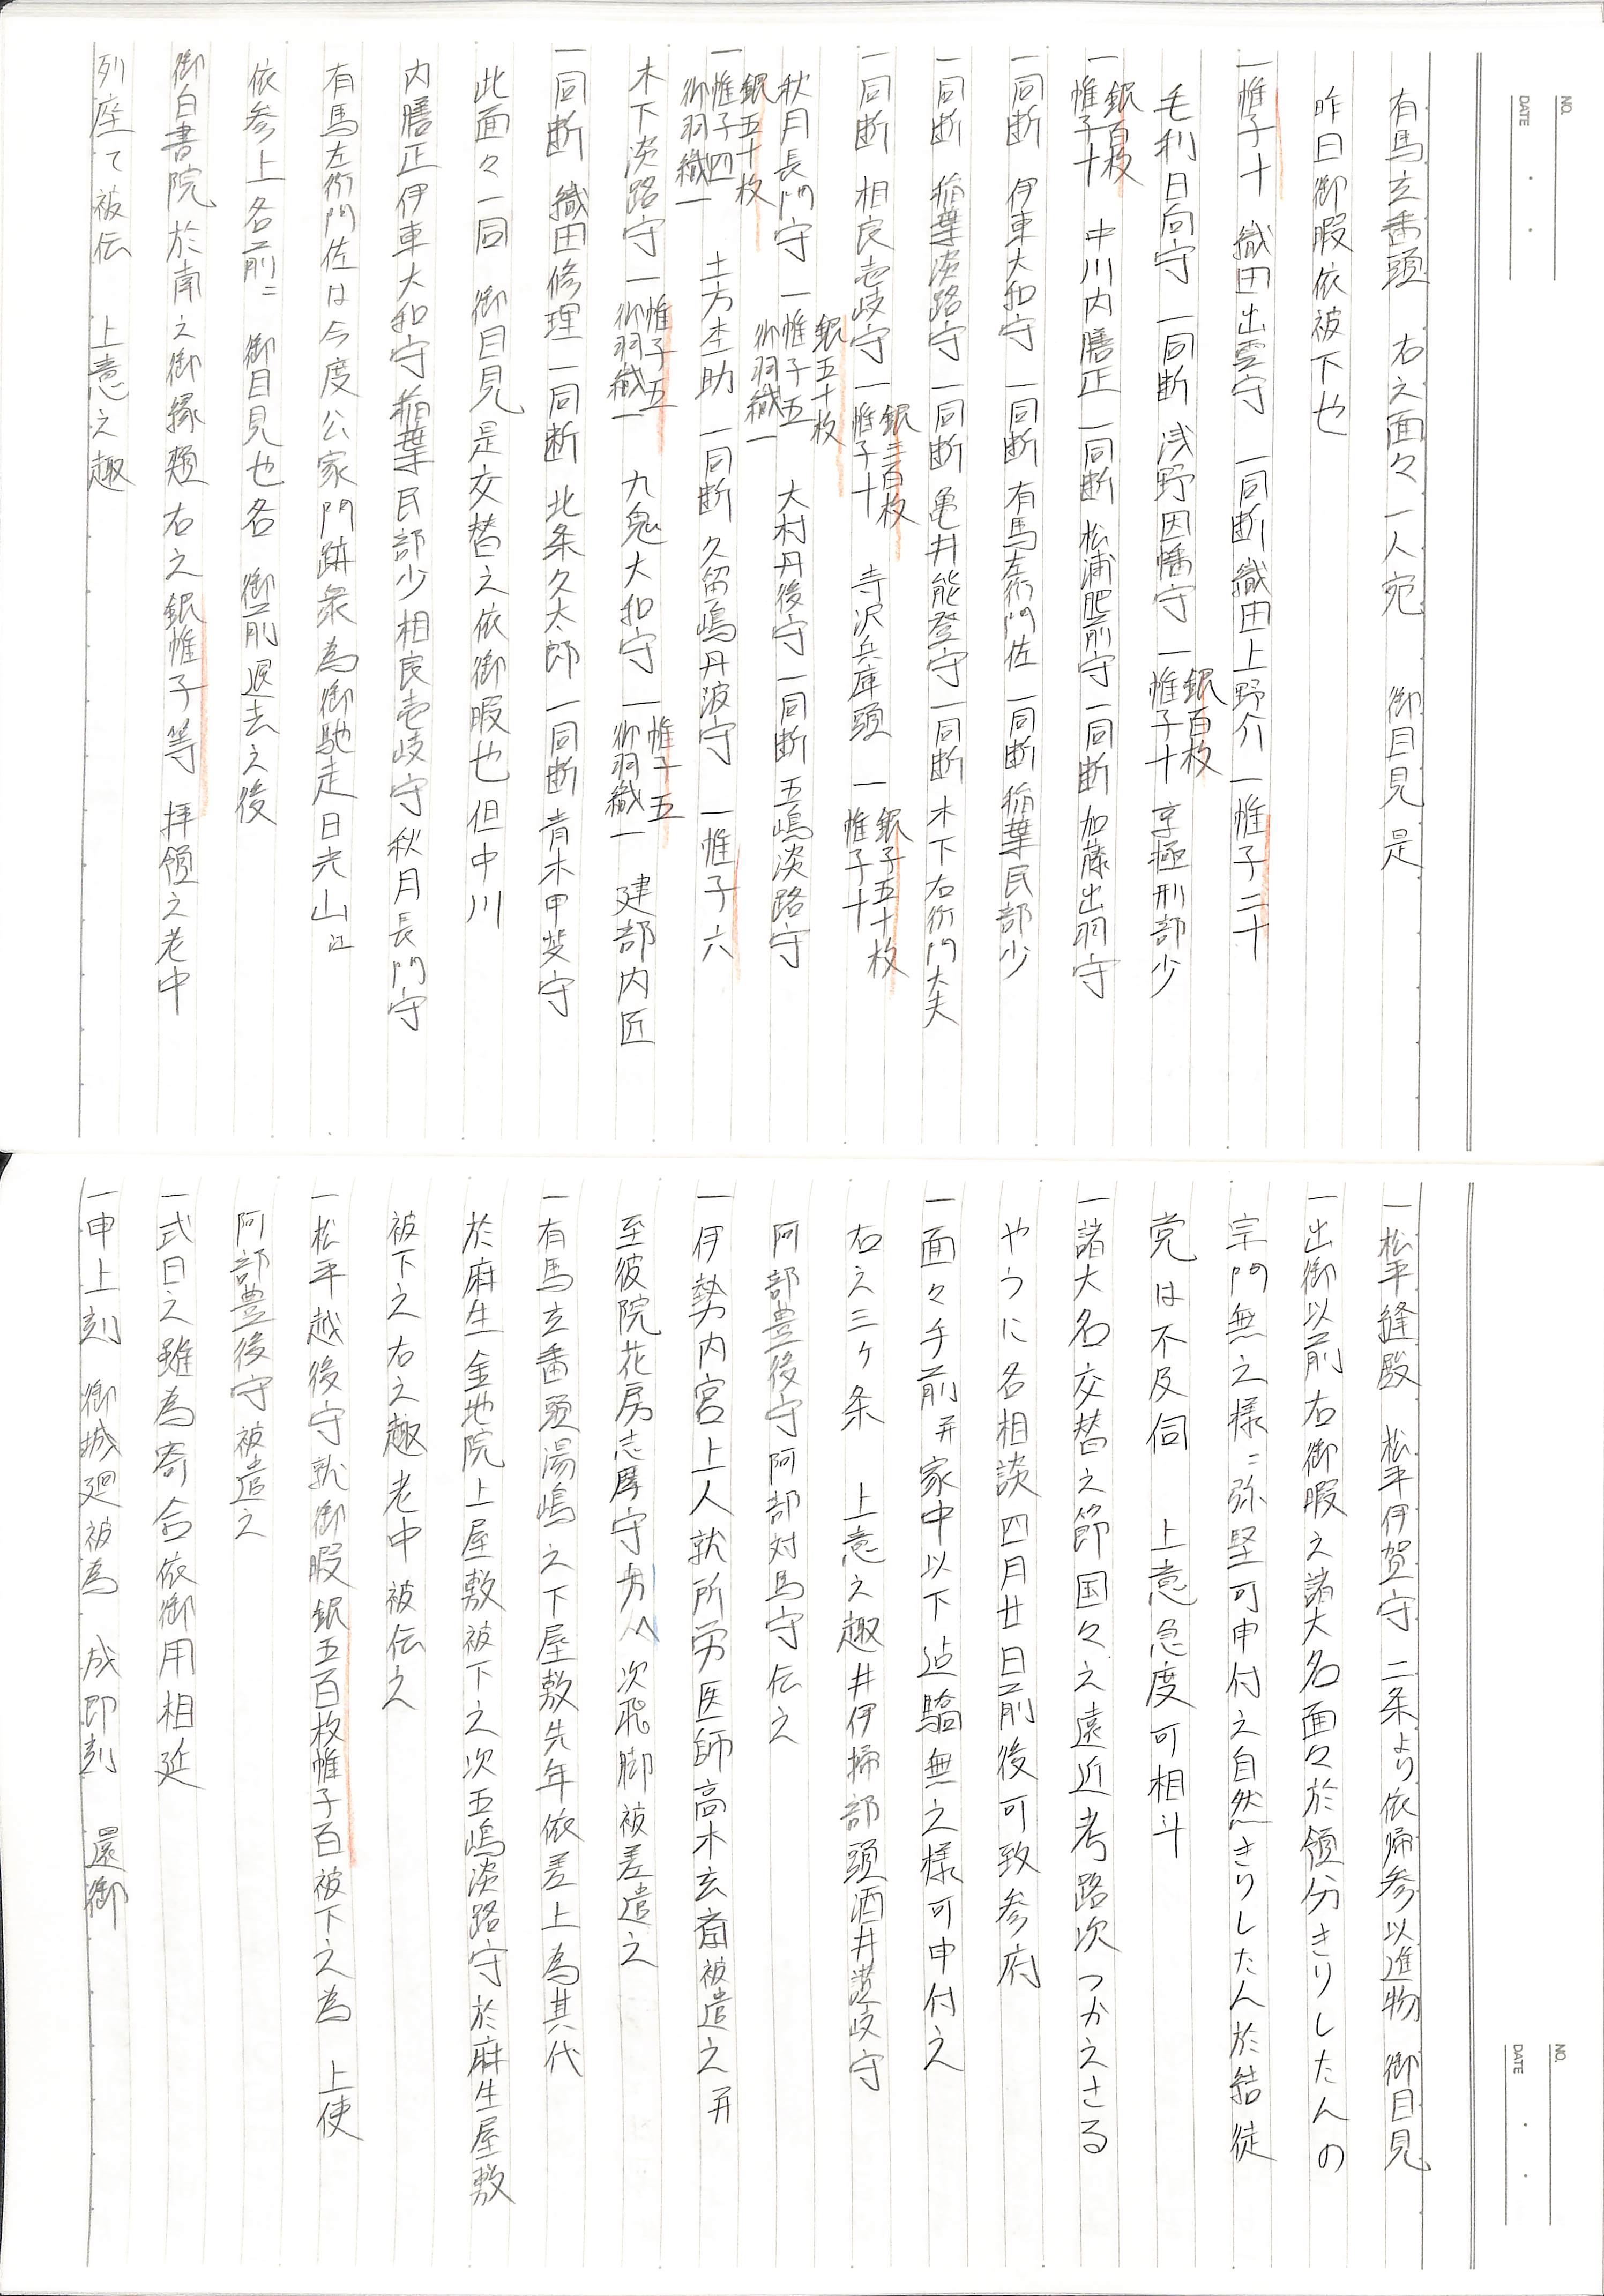 NO.
DATE
有馬玄番頭 右之面々一人宛 御目見 是
昨日御暇依被下也
一帷子十 織田出雲守 一同断 織田上野介 一帷子二十
毛利日向守 一同断 浅野因幡守 一銀百枚帷子十 京極刑部少
一銀百枚帷子十 中川内膳正 一同断 松浦肥前守 一同断 加藤出羽守
一同断 伊東大和守 一同断 有馬左衛門佐 一同断 稲葉民部少
一同断 稲葉淡路守 一同断 亀井能登守 一同断 木下右衛門大夫
一同断 相良壱岐守 一銀三百枚帷子十 寺沢兵庫頭 一銀子五十枚帷子十
秋月長門守 一銀五十枚帷子五御羽織一 大村丹後守 一同断 五嶋淡路守
一銀五十枚帷子四御羽織一 土方杢助 一同断 久留嶋丹波守 一帷子六
木下淡路守 一帷子五御羽織一 九鬼大和守 一帷子五御羽織一 建部内匠
一同断 織田修理 一同断 北条久太郎 一同断 青木甲斐守
此面々一同 御目見是交替之依御暇也但中川
内膳正伊東大和守稲葉民部少相良壱岐守秋月長門守
有馬左衛門佐は今度公家門跡衆為御馳走日光山江
依参上各前ニ 御目見也各 御前退去之後
御白書院於南之御縁頬右之銀帷子等 拝領之老中
列座て被伝 上意之趣
NO.
DATE
一松平縫殿 松平伊賀守 二条より依帰参以進物 御目見
一出御以前右御暇之諸大名面々於領分きりしたんの
宗門無之様ニ弥堅可申付之自然きりしたん於結徒
党は不及伺 上意急度可相斗
一諸大名交替之節国々之遠近考路次つかえさる
やうに各相談四月廿日前後可致参府
一面々手前并家中以下迠驕無之様可申付之
右之三ヶ条 上意之趣井伊掃部頭酒井讃岐守
阿部豊後守阿部対馬守伝之
一伊勢内宮上人就所労医師高木玄斎被遣之并
至彼院花房志摩守方へ次飛脚被差遣之
一有馬玄番頭湯嶋之下屋敷先年依差上為其代
於麻生金地院上屋敷被下之次五嶋淡路守於麻生屋敷
被下之右之趣老中被伝之
一松平越後守就御暇銀五百枚帷子百被下之為 上使
阿部豊後守被遣之
一式日之雖為寄合依御用相延
一申上刻 御城廻被為 成即刻 還御